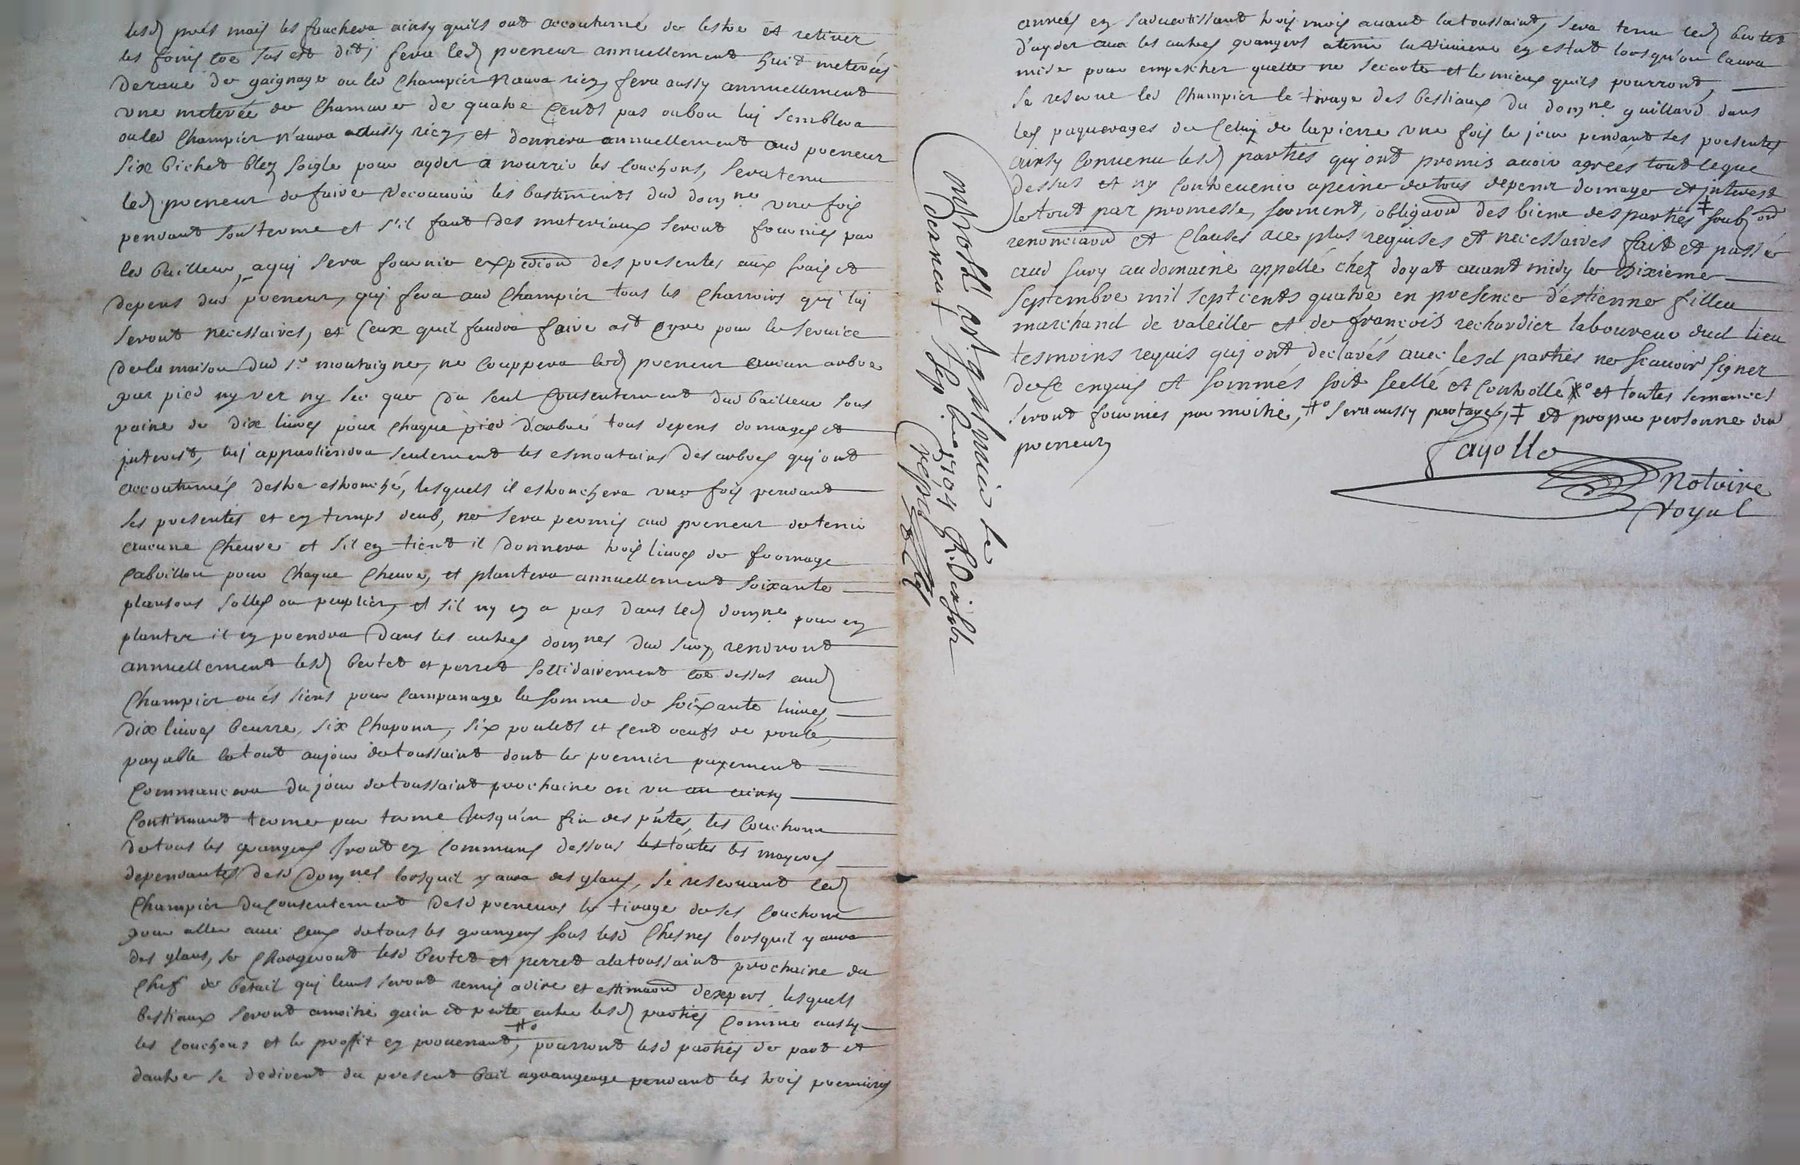 lesd prés mais les fauchera ainsy quils ont accoutumé de lestre et retirer
les foins coe sus est dit, fera led preneur annuellement huit meterées
de raue de gaignage ou led Champier n'aura rien, fera aussy annuellement
une meterée de Chanavre de quatre Cents pas ou bon luy semblera
ou led Champier n'aura aussy rien, et donnera annuellement aud preneur
six bichets bled soigle pour ayder a nourrir les Couchons, sera tenu
led preneur de faire recouvrir les bastiments dud domne une fois
pendant son terme et s'il faut des materiaux seront fournis par
led bailleur, a qui sera fournie expedition des presentes aux frais et
depens dud preneur, qui fera aud Champier tous les Charrois qui luy
seront necessaires, et Ceux quil faudra faire pour le service
de la maison dud sr montaigne, ne Couppera led preneur aucun arbre
par pied ny ver ny sec que du seul Consentement dud bailleur sous
peine de dix livres pour chaque pied d'arbre tous depens domages et
interest, luy appartiendra seulement les esmontains des arbres qui ont
accoutumés destre esbranché, lesquels il esbranchera une fois pendant
les presentes et en temps deub, ne sera permis aud preneur de tenir
aucune Cheuvre et s'il en tient il donnera trois livres de fromage
Cabrillon pour Chaque Cheuvre, et plantera annuellement soixante
plansons solles ou peuplier, et s'il ny en a pas dans led domne pour en
planter il en prendra dans les autres domnes dud Sury, rendront
annuellement lesd bertet et perret sollidairement coe dessus aud
Champier ou és siens pour Campanage la somme de soixante livres
dix livres beurre, six Chapons, six poulets et Cent oeufs de poule,
payable le tout au jour de toussaint dont le premier payement
Commancera du jour de toussaint prochaine en un an ainsy
Continuant terme par terme jusqu'en fin des pntes, les Couchons
de tous les grangers iront en Commun dessous les toutes les
dependantes desd domnes lorsquil y aura des glans, se reservant led
Champier du Consentement desd preneurs le tirage de ses Couchons
pour aller avec Ceux de tous les grangers sous lesd Chesnes lorsquil y aura
des glans, se Chargeront lesd bertet et perret a la toussaint prochaine du
Chef de betail qui leurs seront remis a dire et estimation dexpers, lesquels
bestiaux seront a moitié gain et perte entre lesd parties Comme aussy
les Couchons et le proffit en provenant, pourront lesd parties de part et
d'autre se dedirent du present bail a grangeage pendant les trois premieres
années en s'advertissant trois mois avant la toussaint, sera tenu led bertet
d'ayder aux les autres grangers a tenir la riviere en estat lorsqu'on l'aura
mise pour empescher quelle ne s'ecarte et le mieux quils pourront,
se reserve led Champier le tirage des bestiaux du domne guillard dans
les paquerages de Celuy de lapierre une fois le jour pendant les presentes
ainsy Convenu lesd parties qui ont promis avoir agrees tout ce que
dessus et ny Contrevenir a peine de tous depens domages et interest
le tout par promesse, serment, obligaon des biens des parties ‡ soub on
renonciaon et Clauses a ce plus requises et necessaires fait et passé
aud Sury au domaine appellé chez doyat avant midy le dixieme
septembre mil sept cents quatre en presence d'estienne filleu
marchand de valeille et de francois rechardier laboureur dud lieu
tesmoins requis qui ont declarés avec lesd parties ne scavoir signer
de Ce enquis et sommés soit scellé et Controllé et toutes semances
seront fournies par moitié, sera aussy partagés, ‡ et propre personne du
preneur
Payolle
Notaire
royal
Controllé le
sept. 1704